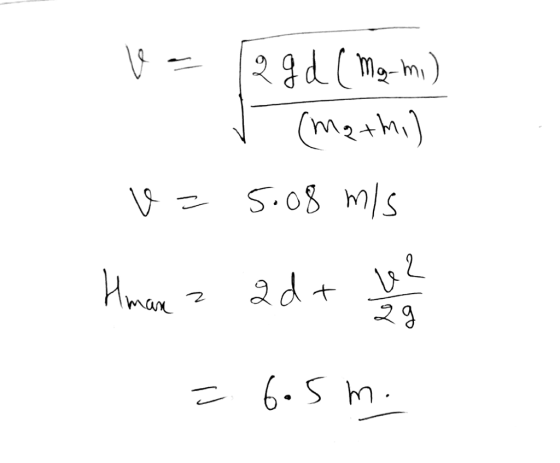 v = √(2gd(m₂-m₁)/(m₂+m₁))
v = 5.08 m/s
Hmax = 2d + v²/2g
= 6.5 m.